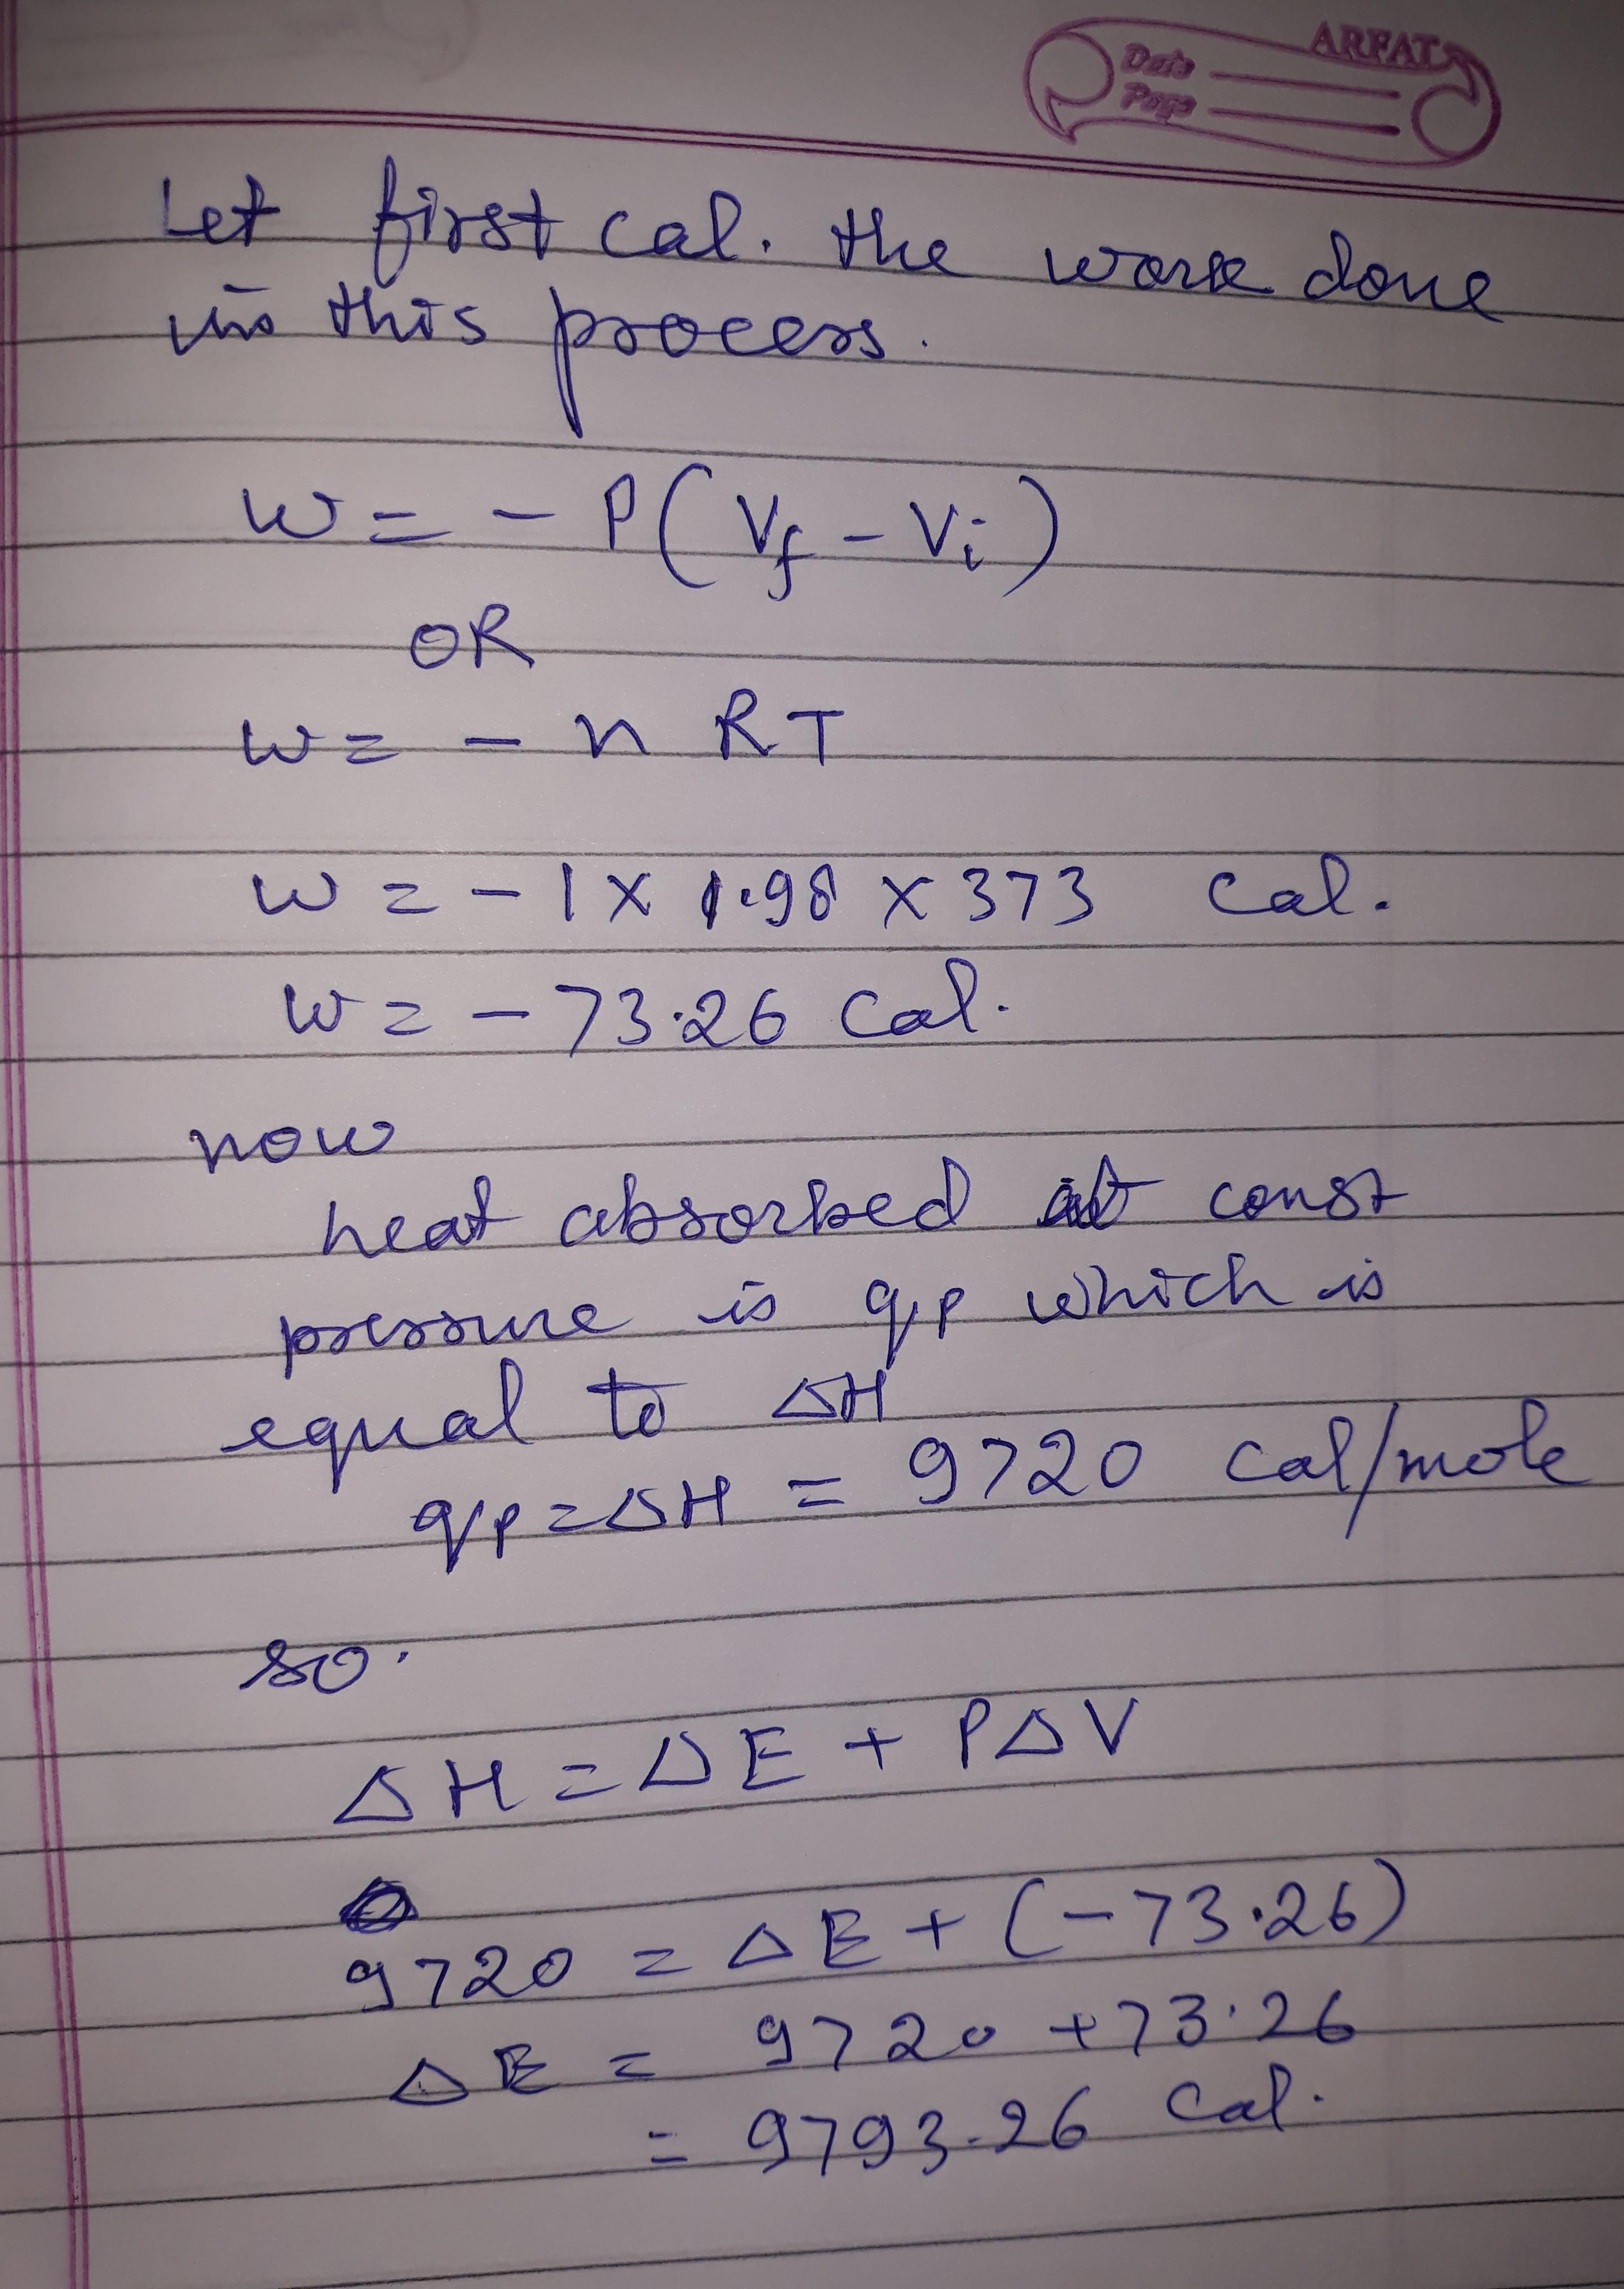 ARFAT
Date
Page
Let first cal. the work done
in this process.
W = - P ( Vf - Vi )
OR
W = - n R T
W = - 1 X 1.98 X 373 Cal.
W = - 73.26 Cal.
now
heat absorbed at const
pressure is qp which is
equal to ΔH
qp = ΔH = 9720 Cal/mole
so.
ΔH = ΔE + PΔV
9720 = ΔE + (-73.26)
ΔE = 9720 + 73.26
= 9793.26 Cal.